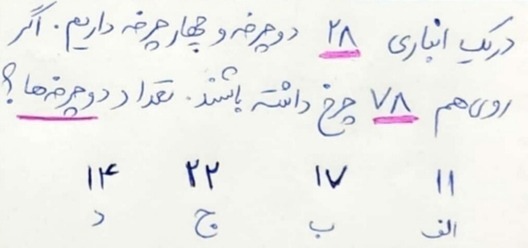 در یک انباری ۲۸ دوچرخه و چهارچرخه داریم. اگر
روی هم ۷۸ چرخ داشته باشند. تعداد دوچرخه‌ها؟
۱۱ ۱۷ ۲۲ ۱۴
الف ب ج د